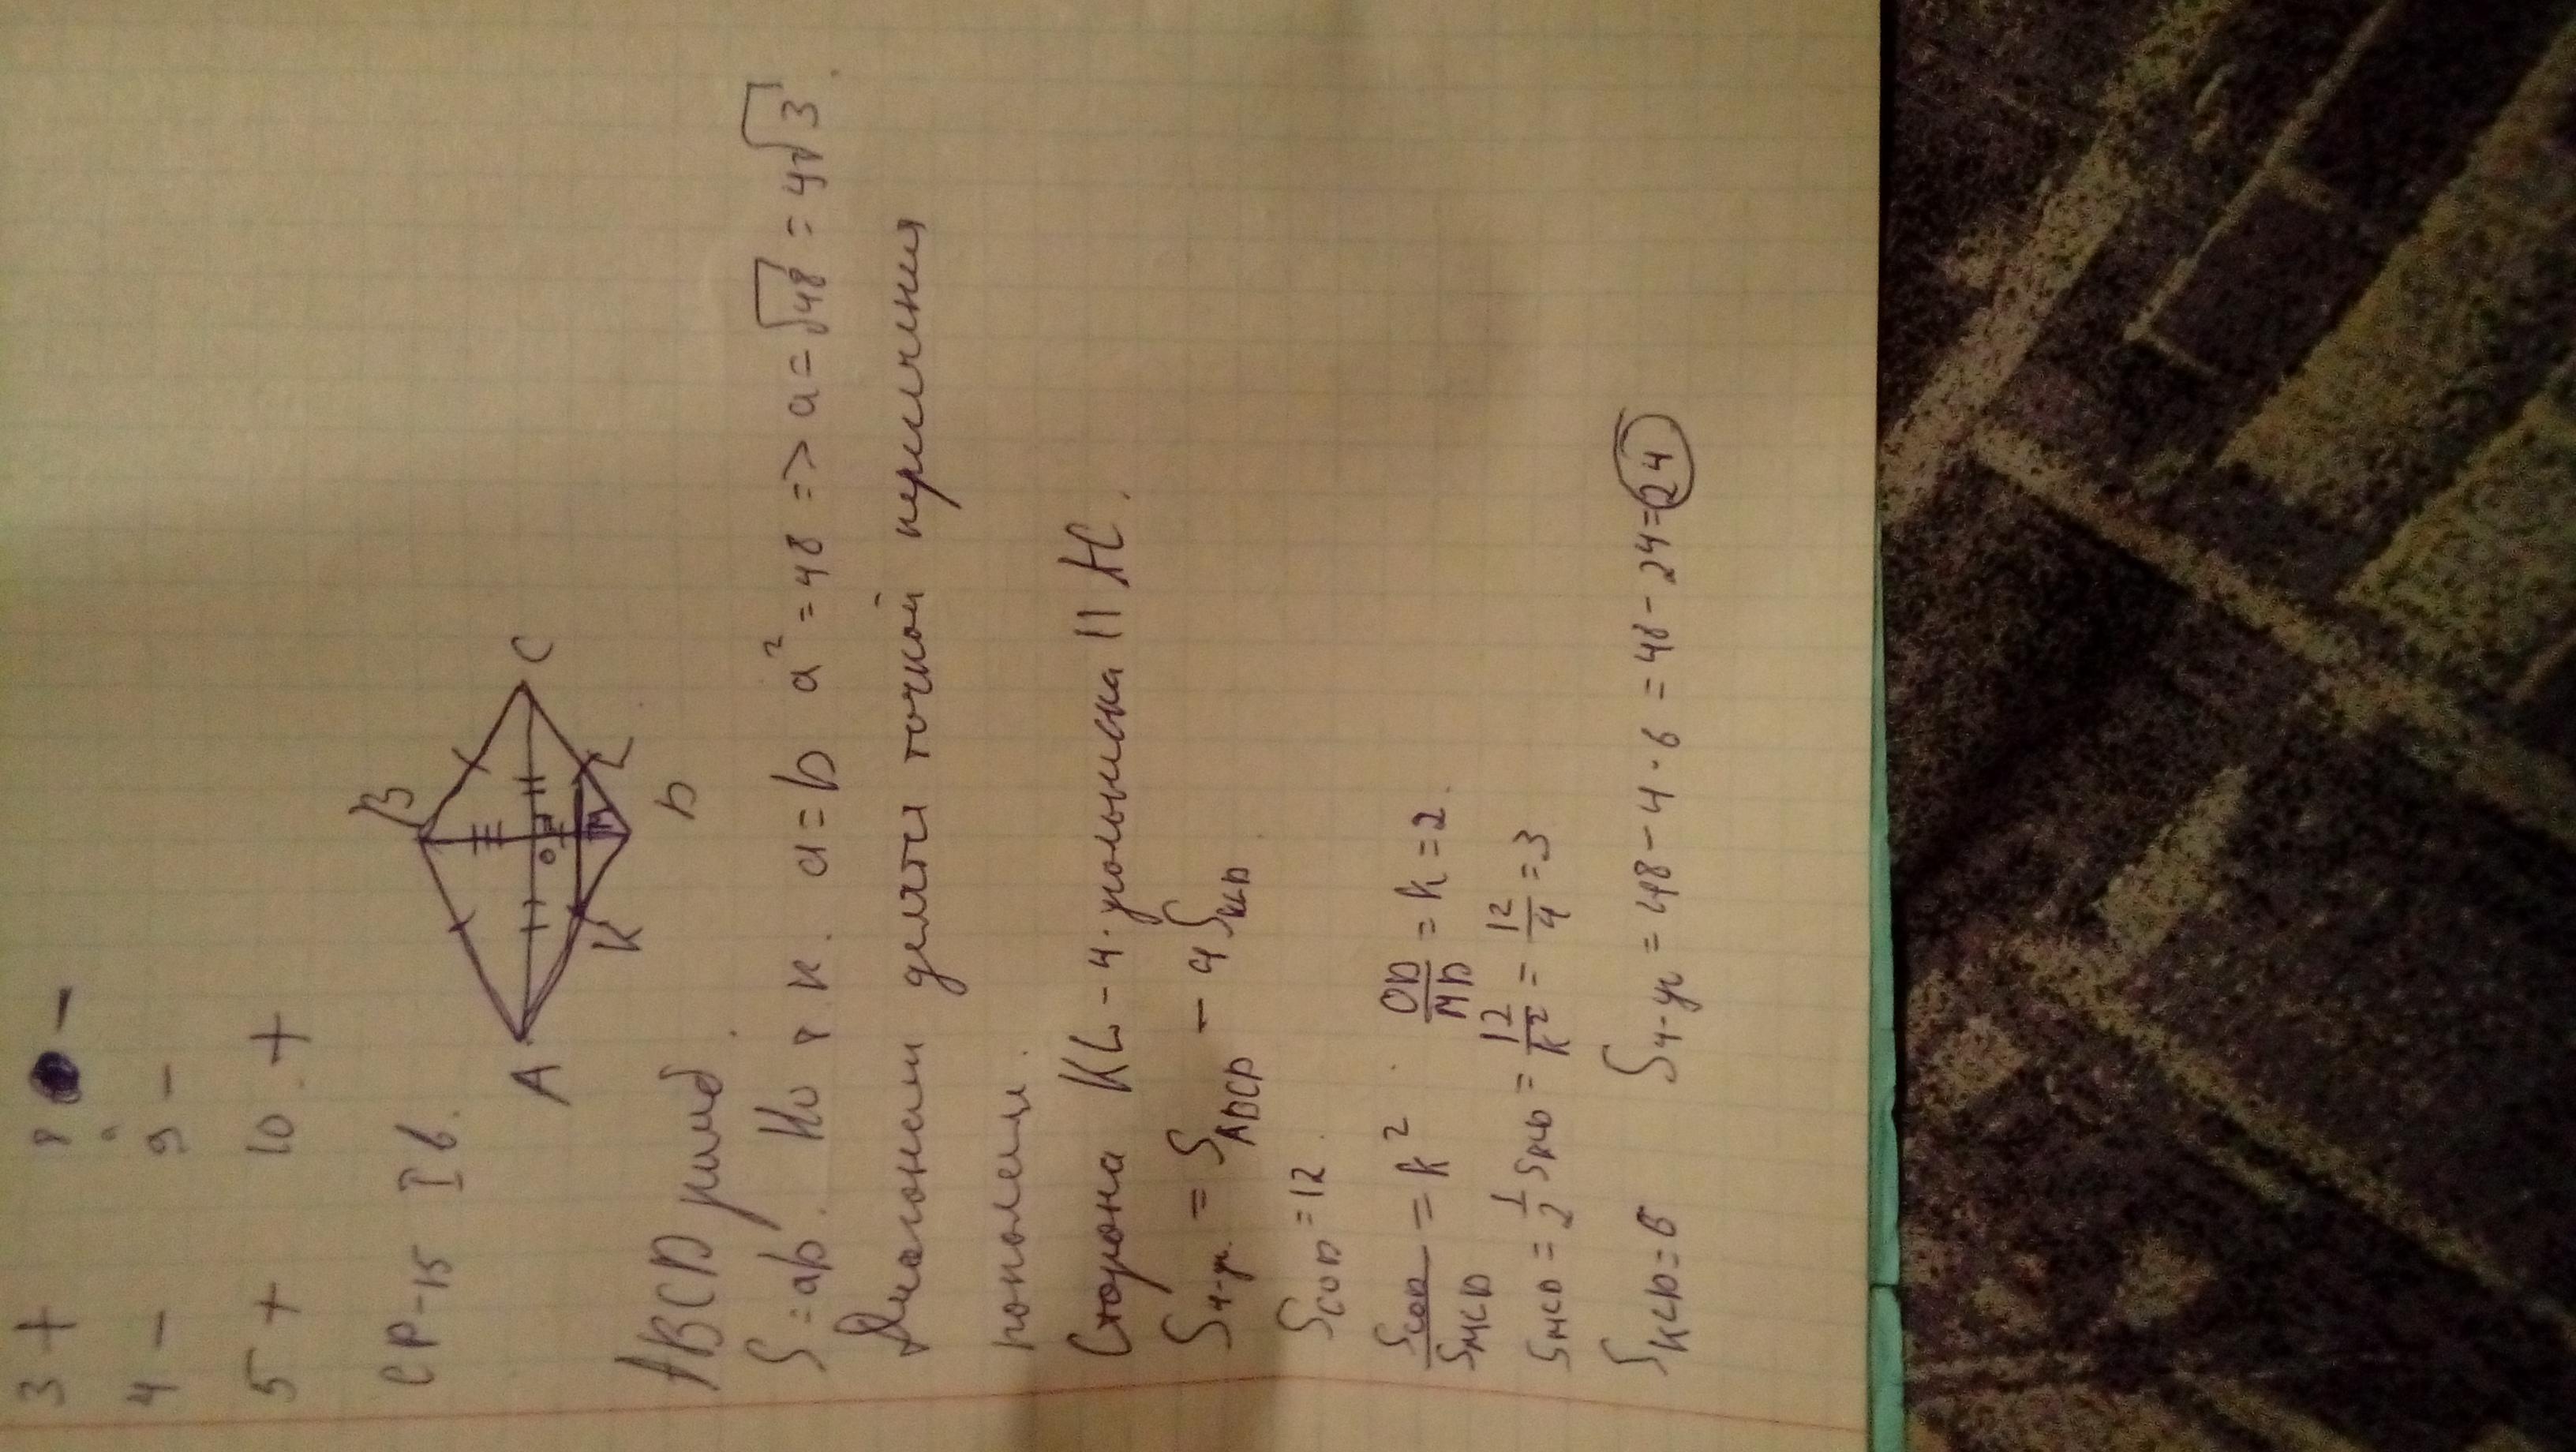 3 + 8 -
4 - 9 -
5 + 10 +
СР-15 I в.
B
A
C
O
M
K
L
D
ABCD ромб.
S = ab. Но т. к. a = b a² = 48 => a = √48 = 4√3.
Диагонали делятся точкой пересечения
пополам.
Сторона KL - 4-угольника || AC.
S4-уг. = SABCD - 4 SKLD
SCOD = 12.
SCOD/SMCD = k². OD/MD = k = 2.
SMCD = 1/2 SKLD = 12/k² = 12/4 = 3
SKCD = 6 S4-уг = 48 - 4 · 6 = 48 - 24 = 24